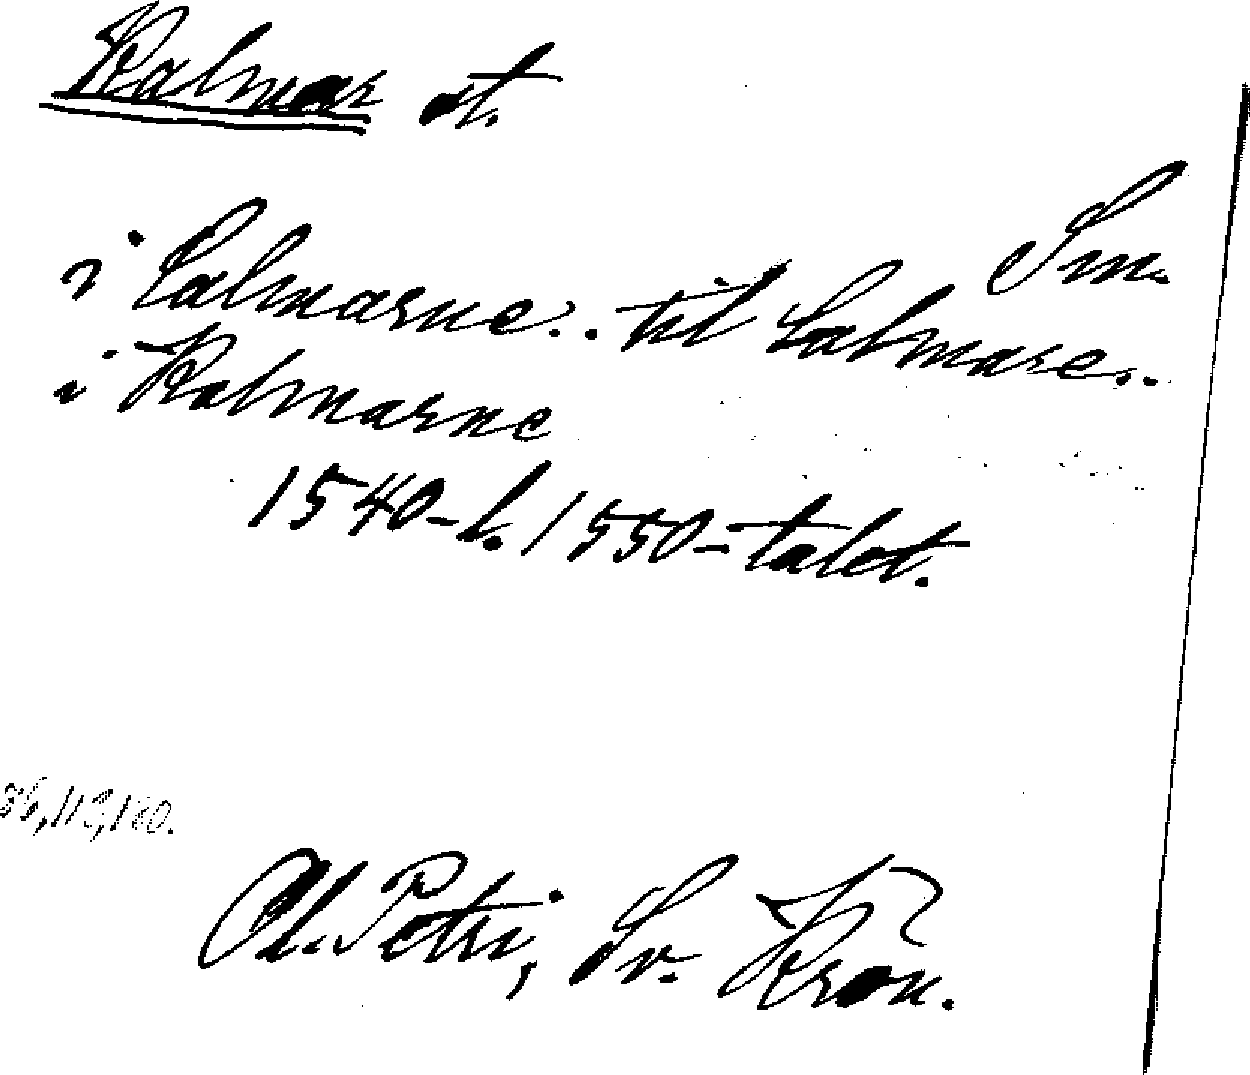 Kalmar st.
Sm.
i Calmarne.. til Calmare..
i Kalmarne
1540-t. 1550-talet.
86, 113, 180.
Ol. Petri, Sv. Krön.